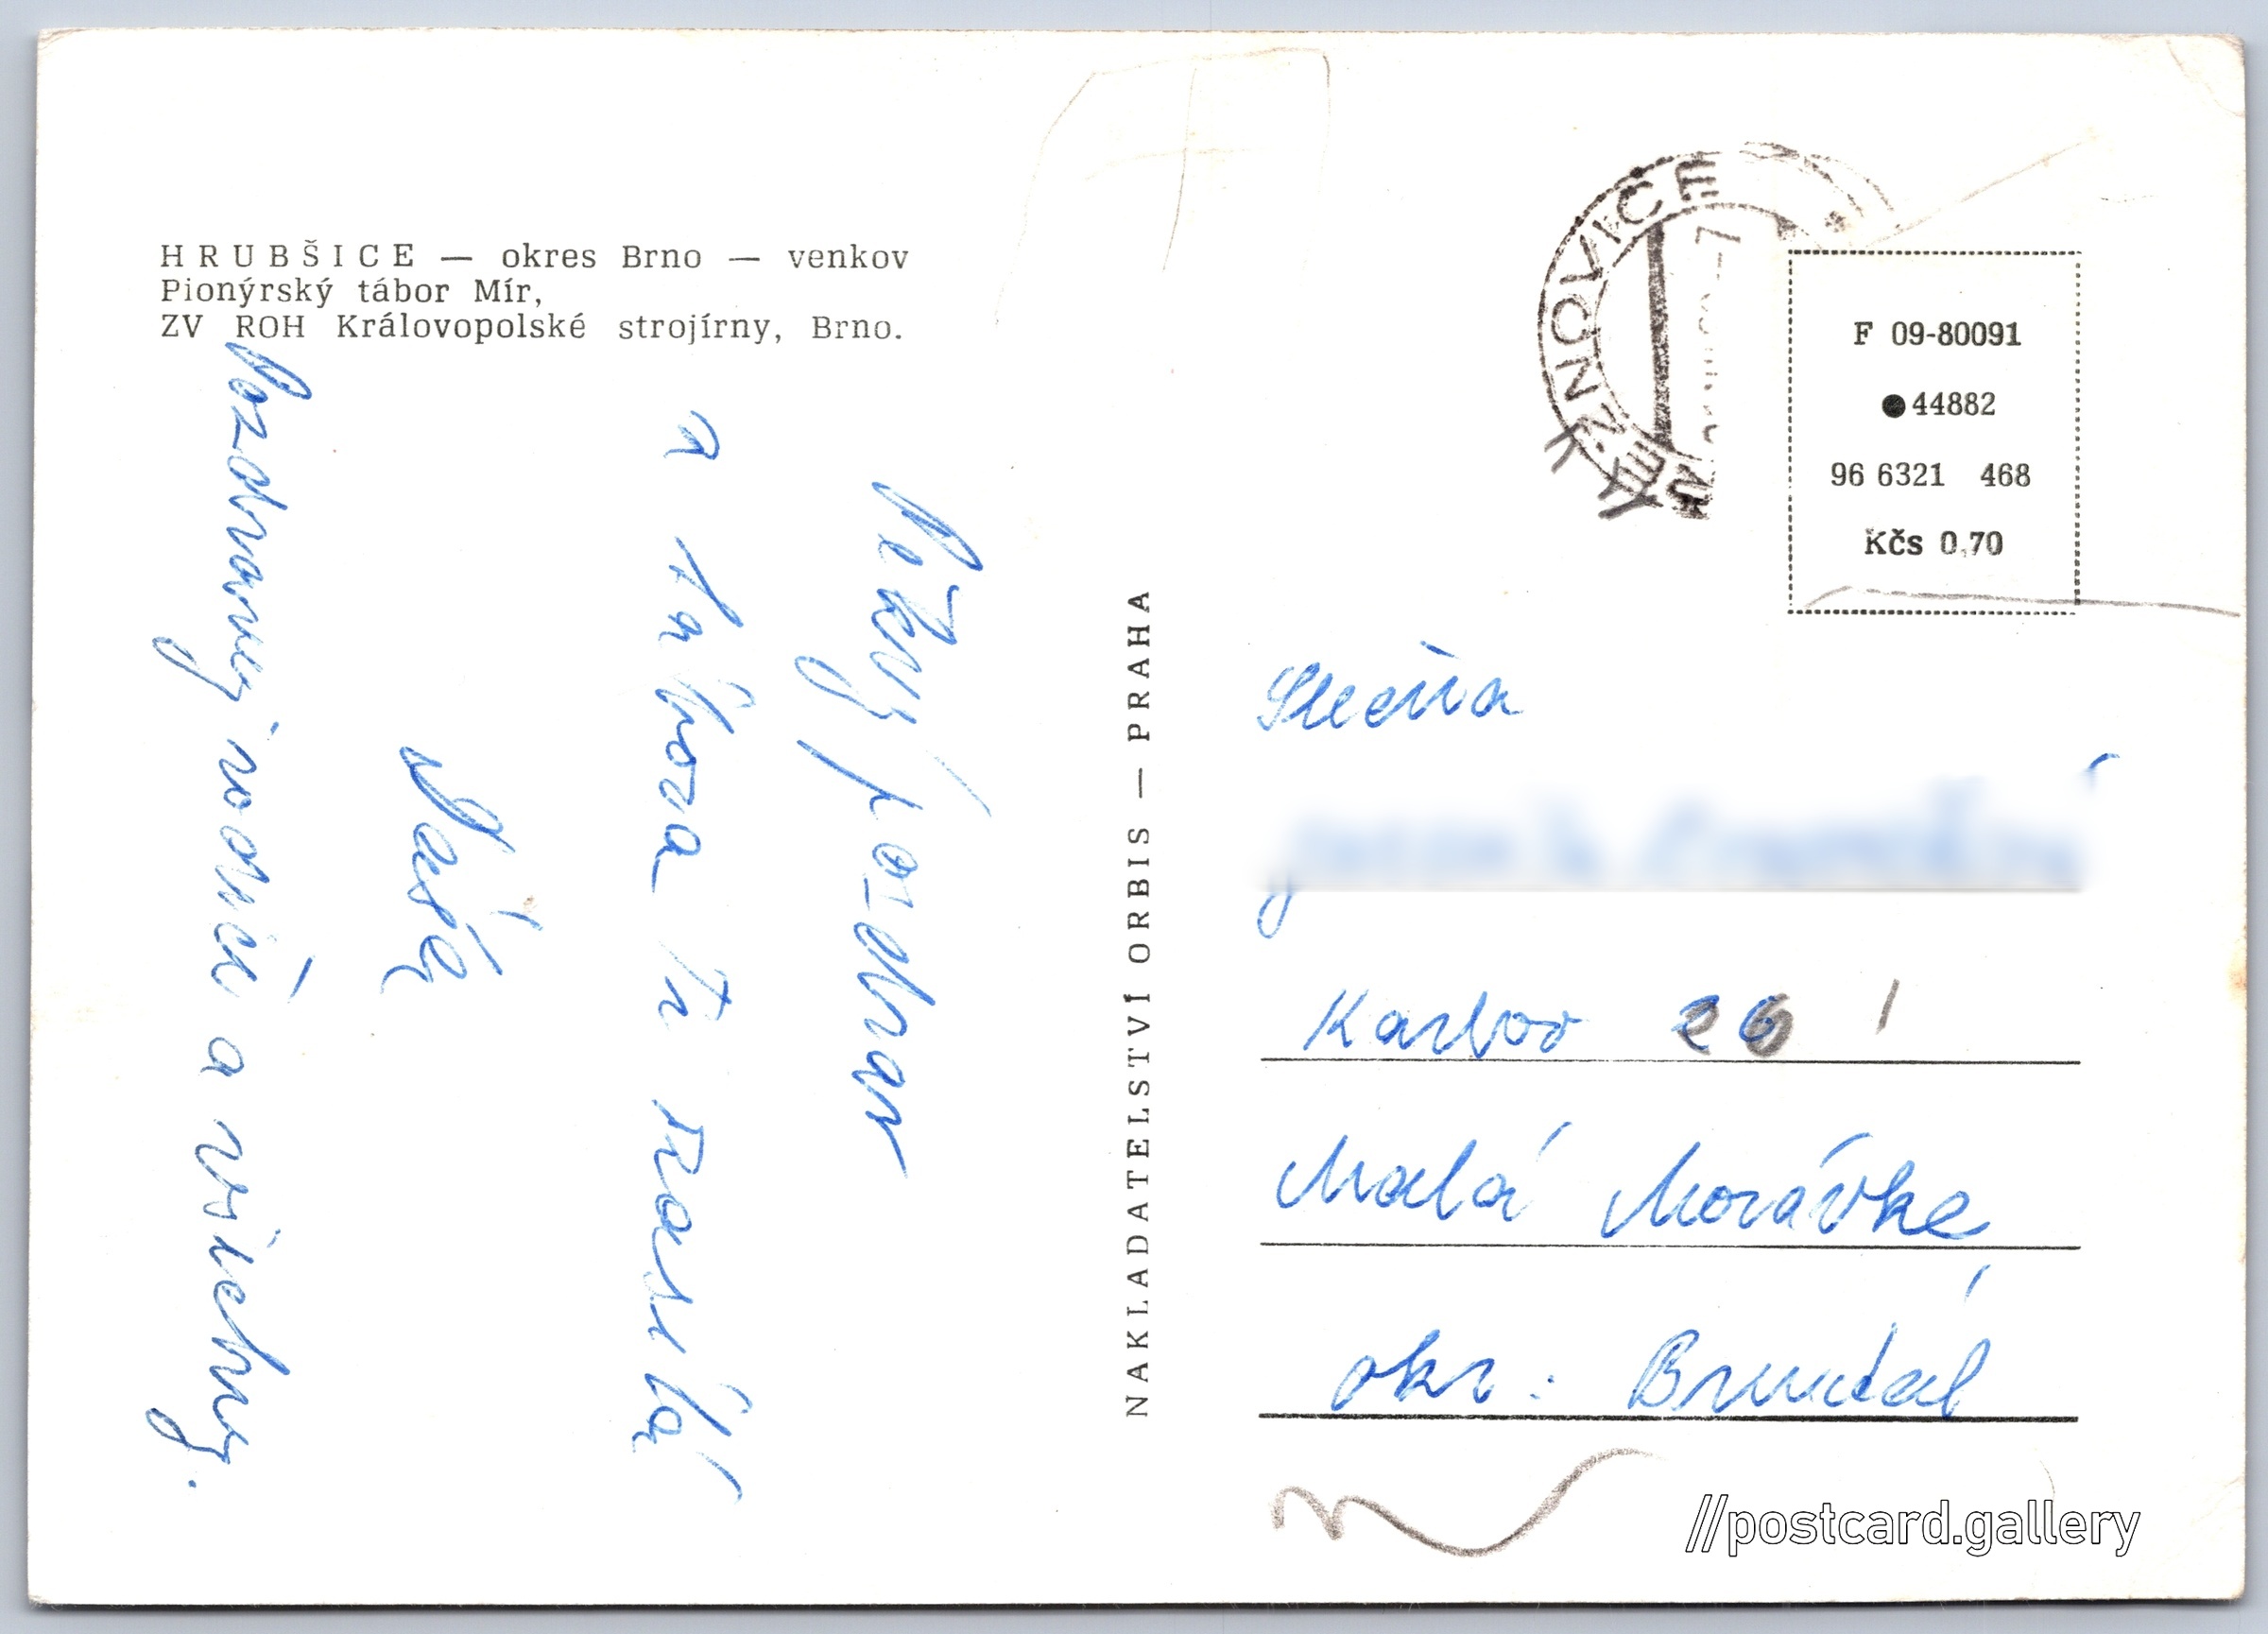 HRUBŠICE — okres Brno — venkov
Pionýrský tábor Mír,
ZV ROH Královopolské strojírny, Brno.
Pěkný pozdrav
z tábora Ti
Dáša
Pozdravuj rodiče a všechny.
NAKLADATELSTVÍ ORBIS — PRAHA
NOVICE
F 09-80091
44882
96 6321 468
Kčs 0,70
Slečna
Karlov 26
Malá Morávka
okr: Bruntál
//postcard.gallery